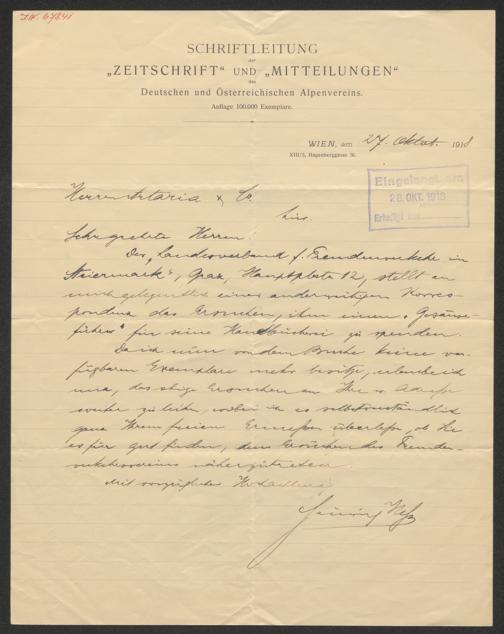 I.N. 67841
SCHRIFTLEITUNG
der
„ZEITSCHRIFT“ UND „MITTEILUNGEN“
des
Deutschen und Österreichischen Alpenvereins.
Auflage 100.000 Exemplare.
WIEN, am 27. Oktob. 1918
XIII/5, Hagenberggasse 36.
Eingelangt am
28. OKT. 1918
Erledigt
Herren Artaria & Co
Sehr geehrte Herren!
Der „Landesverband f. Fremdenverkehr in
Steiermark“, Graz, Hauptplatz 12, stellt an
mich gelegentlich einer anderweitigen Korres-
pondenz das Ersuchen, ihm einen
führer“ für seine Handbücherei zu spenden.
Da ich nun von dem Buche keine ver-
fügbaren Exemplare mehr besitze, erlaube ich
mir, das obige Ersuchen an Ihre Adresse
weiter zu leiten, wobei ich es selbstverständlich
ganz Ihrem freien Ermessen überlasse, ob Sie
es für gut finden, dem Ersuchen des Fremden-
verkehrsvereins näherzutreten.
Mit vorzüglicher Hochachtung